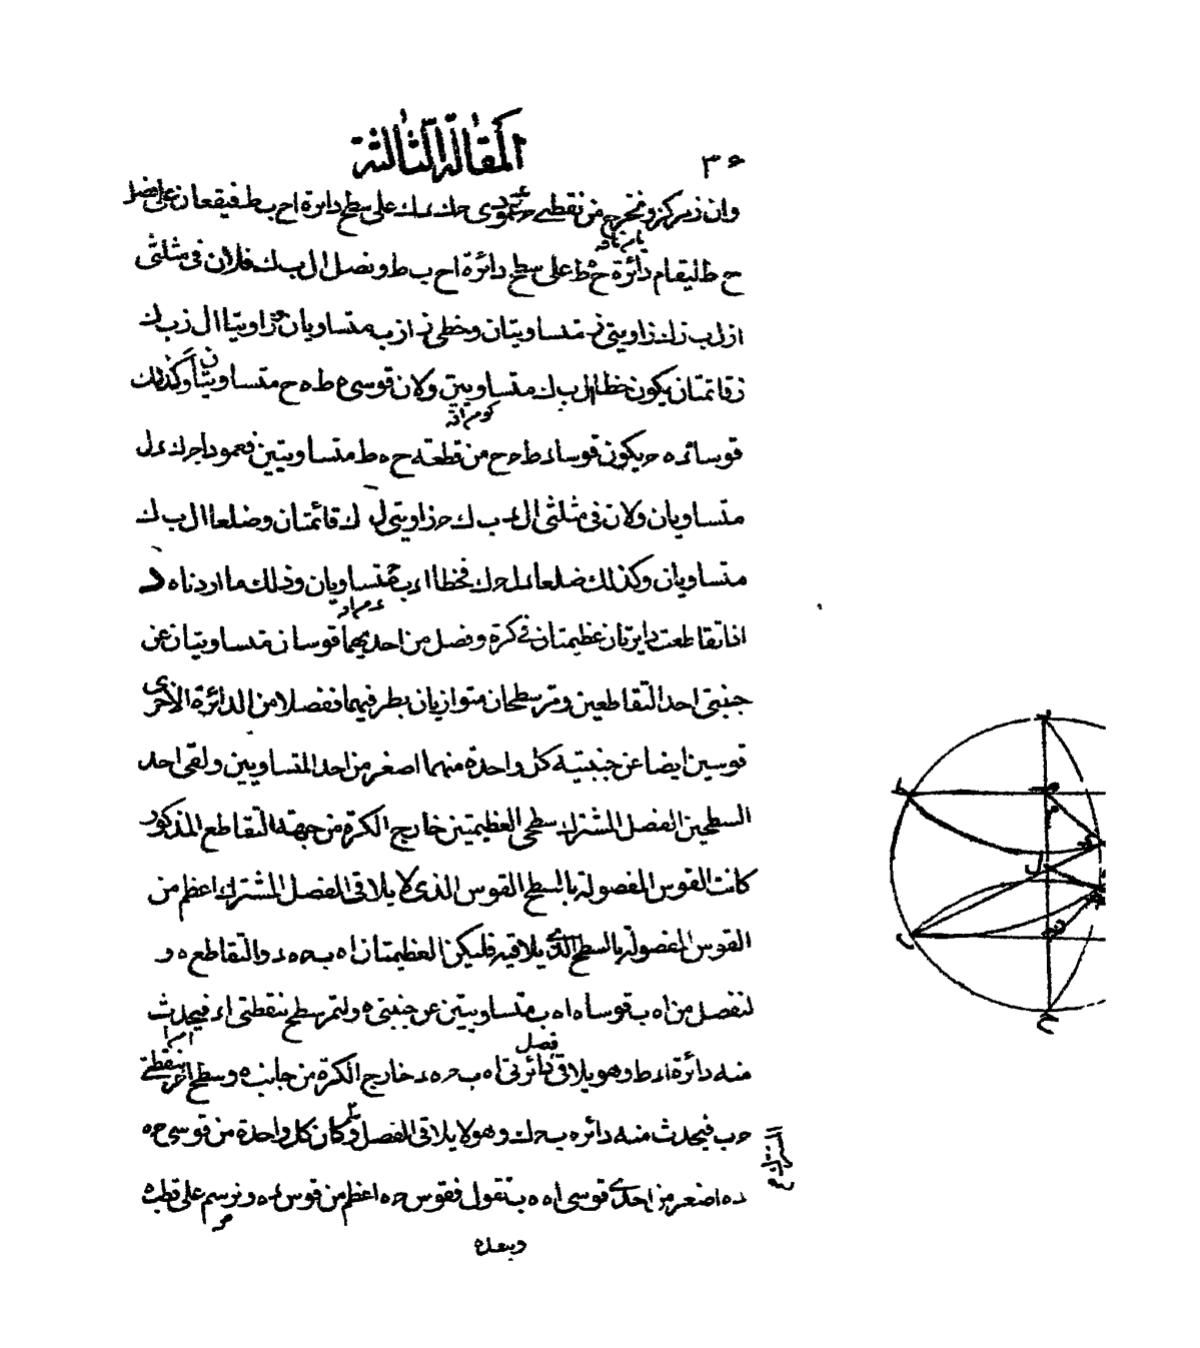 المقالة الثالثة
٣٤
وان ز مركز ونخرج من نقطتى ء ح عمودى حك ءل على سطح دائرة اح ب ط فيقعان على فصل
ح ط ليقام دائرة ح ه ط على سطح دائرة اح ب ط ونصل ال ب ك فلان فى مثلثى
ازل ب زك زاويتى ز متساويتان وخطى از زب متساويان وزاويتا ال ز ب ك
ز قائمتان يكون خطا ال ب ك متساويين ولان قوسى ه ط ه ح متساويتان وكذلك
قوسا ءه ه ح يكون قوسا ءط ح ح من قطعة ح ه ط متساويتين فعمودا حك ءل
متساويان ولان فى مثلثى ال ء ب ك ح زاويتى ل ك قائمتان وضلعا ال ب ك
متساويان وكذلك ضلعا ءل حك فخطا اء ب ح متساويان وذلك ما اردناه د
اذا تقاطعت دايرتان عظيمتان فى كرة وفصل من احديهما قوسان متساويتان عن
جنبتى احد التقاطعين ومر سطحان متوازيان بطرفيهما ففصلا من الدائرة الاخرى
قوسين ايضا عن جنبتيه كل واحدة منهما اصغر من احد المتساويين ولقى احد
السطحين الفصل المشترك سطحى العظيمتين خارج الكرة من جهة التقاطع المذكور
كانت القوس المفصولة بالسطح القوس الذى لا يلاقى الفصل المشترك اعظم من
القوس المفصولة بالسطح الذى يلاقيه فليكن العظيمتان اه ب ح ه ء والتقاطع ه و
لنفصل من اه ب قوسا ه ا ه ب متساويتين عن جنبتى ه وليمر سطح بنقطتى اء فيحدث
منه دائرة اء ط وهو يلاقى فصل دائرتى اه ب ح ه ء خارج الكرة من جانب ه وسطح اخر بنقطتى
ح ب فيحدث منه دائرة ب ح ك وهو لا يلاقى الفصل وكان كل واحدة من قوسى ح ه
ءه اصغر من احدى قوسى اه ه ب نقول فقوس ح ه اعظم من قوس ءه ونرسم على قطب ه
وببعد ه